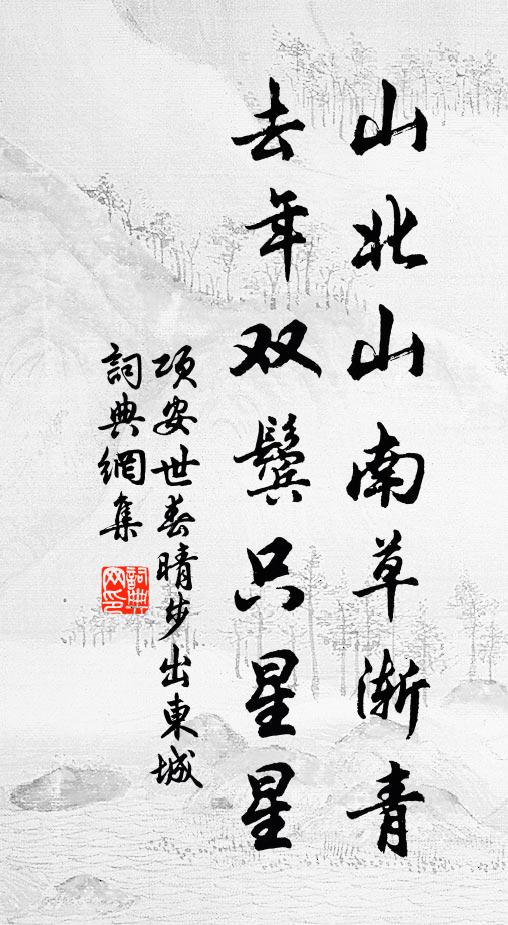 山北山南草渐青
去年双鬓只星星
项安世春晴步出東城
詞典網集
詞典网印